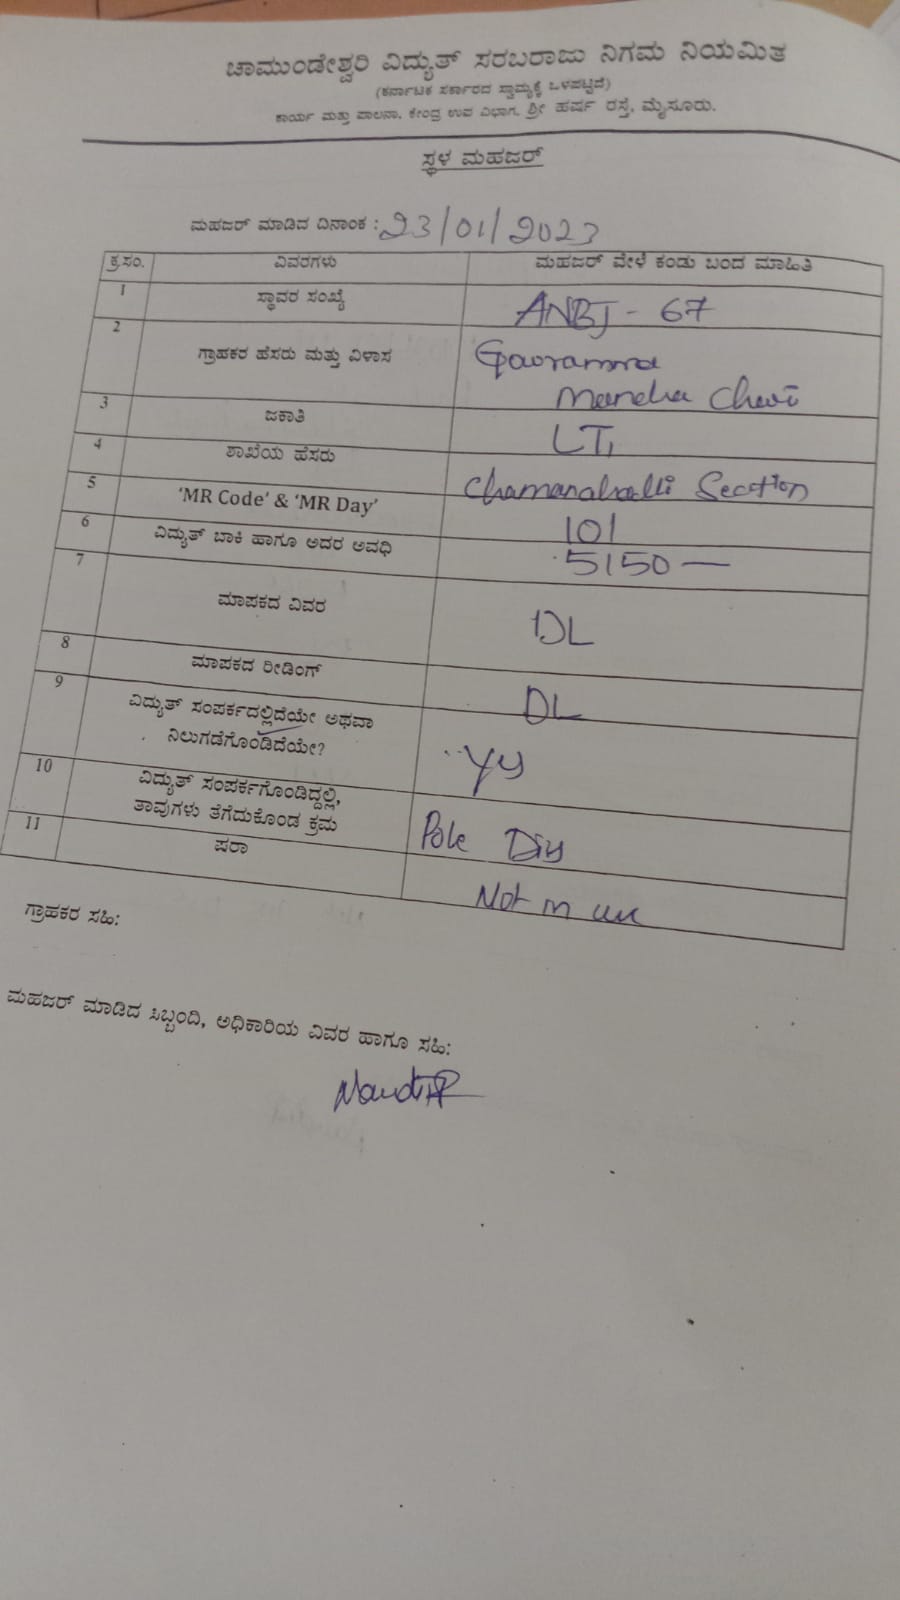 ಚಾಮುಂಡೇಶ್ವರಿ ವಿದ್ಯುತ್ ಸರಬರಾಜು ನಿಗಮ ನಿಯಮಿತ
(ಕರ್ನಾಟಕ ಸರ್ಕಾರದ ಸ್ವಾಮ್ಯಕ್ಕೆ ಒಳಪಟ್ಟಿದೆ)
ಕಾರ್ಯ ಮತ್ತು ಪಾಲನಾ, ಕೇಂದ್ರ ಉಪ ವಿಭಾಗ, ಶ್ರೀ ಹರ್ಷ ರಸ್ತೆ, ಮೈಸೂರು.
ಸ್ಥಳ ಮಹಜರ್
ಮಹಜರ್ ಮಾಡಿದ ದಿನಾಂಕ : 23/01/2023
ಕ್ರ.ಸಂ. ವಿವರಗಳು ಮಹಜರ್ ವೇಳೆ ಕಂಡು ಬಂದ ಮಾಹಿತಿ
1 ಸ್ಥಾವರ ಸಂಖ್ಯೆ ANBJ - 67
2 ಗ್ರಾಹಕರ ಹೆಸರು ಮತ್ತು ವಿಳಾಸ Gowramma
3 ಜಕಾತಿ LT1
4 ಶಾಖೆಯ ಹೆಸರು Chamanahalli Section
5 'MR Code' & 'MR Day' 101
6 ವಿದ್ಯುತ್ ಬಾಕಿ ಹಾಗೂ ಅದರ ಅವಧಿ 5150 —
7 ಮಾಪಕದ ವಿವರ DL
8 ಮಾಪಕದ ರೀಡಿಂಗ್ DL
9 ವಿದ್ಯುತ್ ಸಂಪರ್ಕದಲ್ಲಿದೆಯೇ ಅಥವಾ
ನಿಲುಗಡೆಗೊಂಡಿದೆಯೇ? Yes
10 ವಿದ್ಯುತ್ ಸಂಪರ್ಕಗೊಂಡಿದ್ದಲ್ಲಿ,
ತಾವುಗಳು ತೆಗೆದುಕೊಂಡ ಕ್ರಮ Pole Dis
11 ಷರಾ Not in use
ಗ್ರಾಹಕರ ಸಹಿ:
ಮಹಜರ್ ಮಾಡಿದ ಸಿಬ್ಬಂದಿ, ಅಧಿಕಾರಿಯ ವಿವರ ಹಾಗೂ ಸಹಿ: